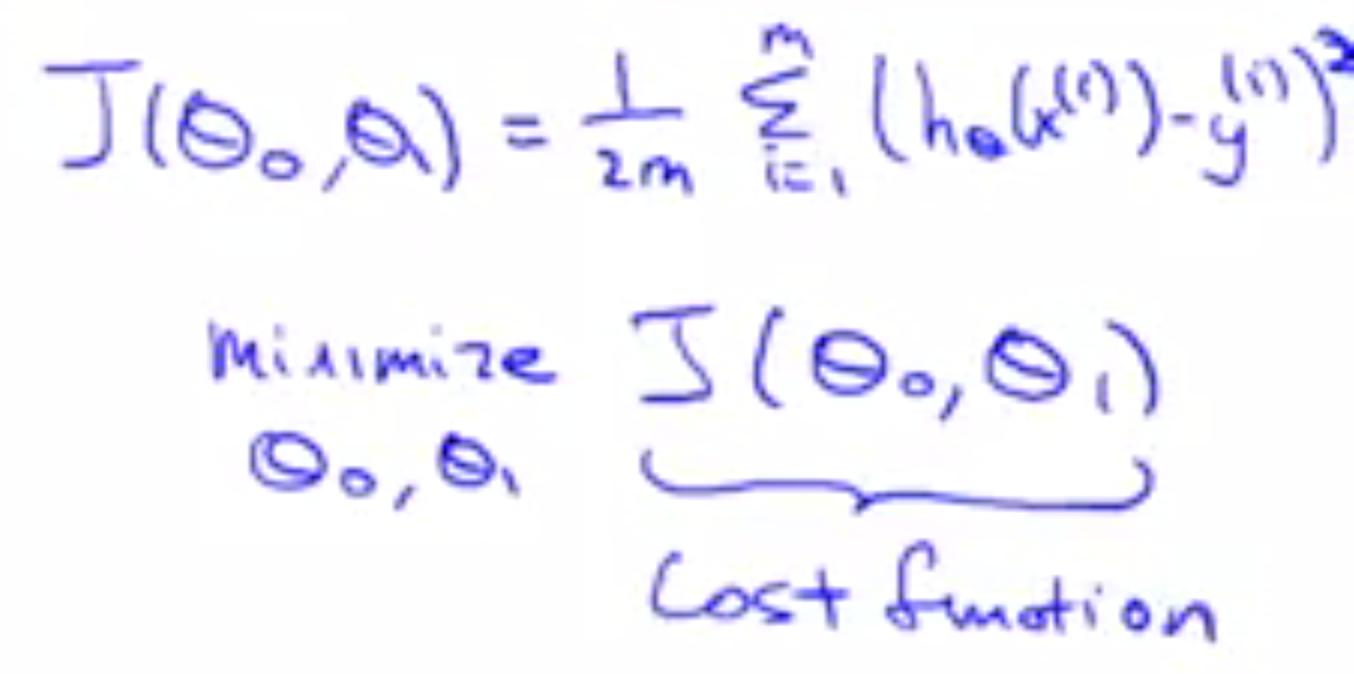 J(θ₀, θ₁) = 1/2m ∑ᵢ₌₁ᵐ (h_θ(x⁽ⁱ⁾) - y⁽ⁱ⁾)²
minimize J(θ₀, θ₁)
θ₀, θ₁
Cost function